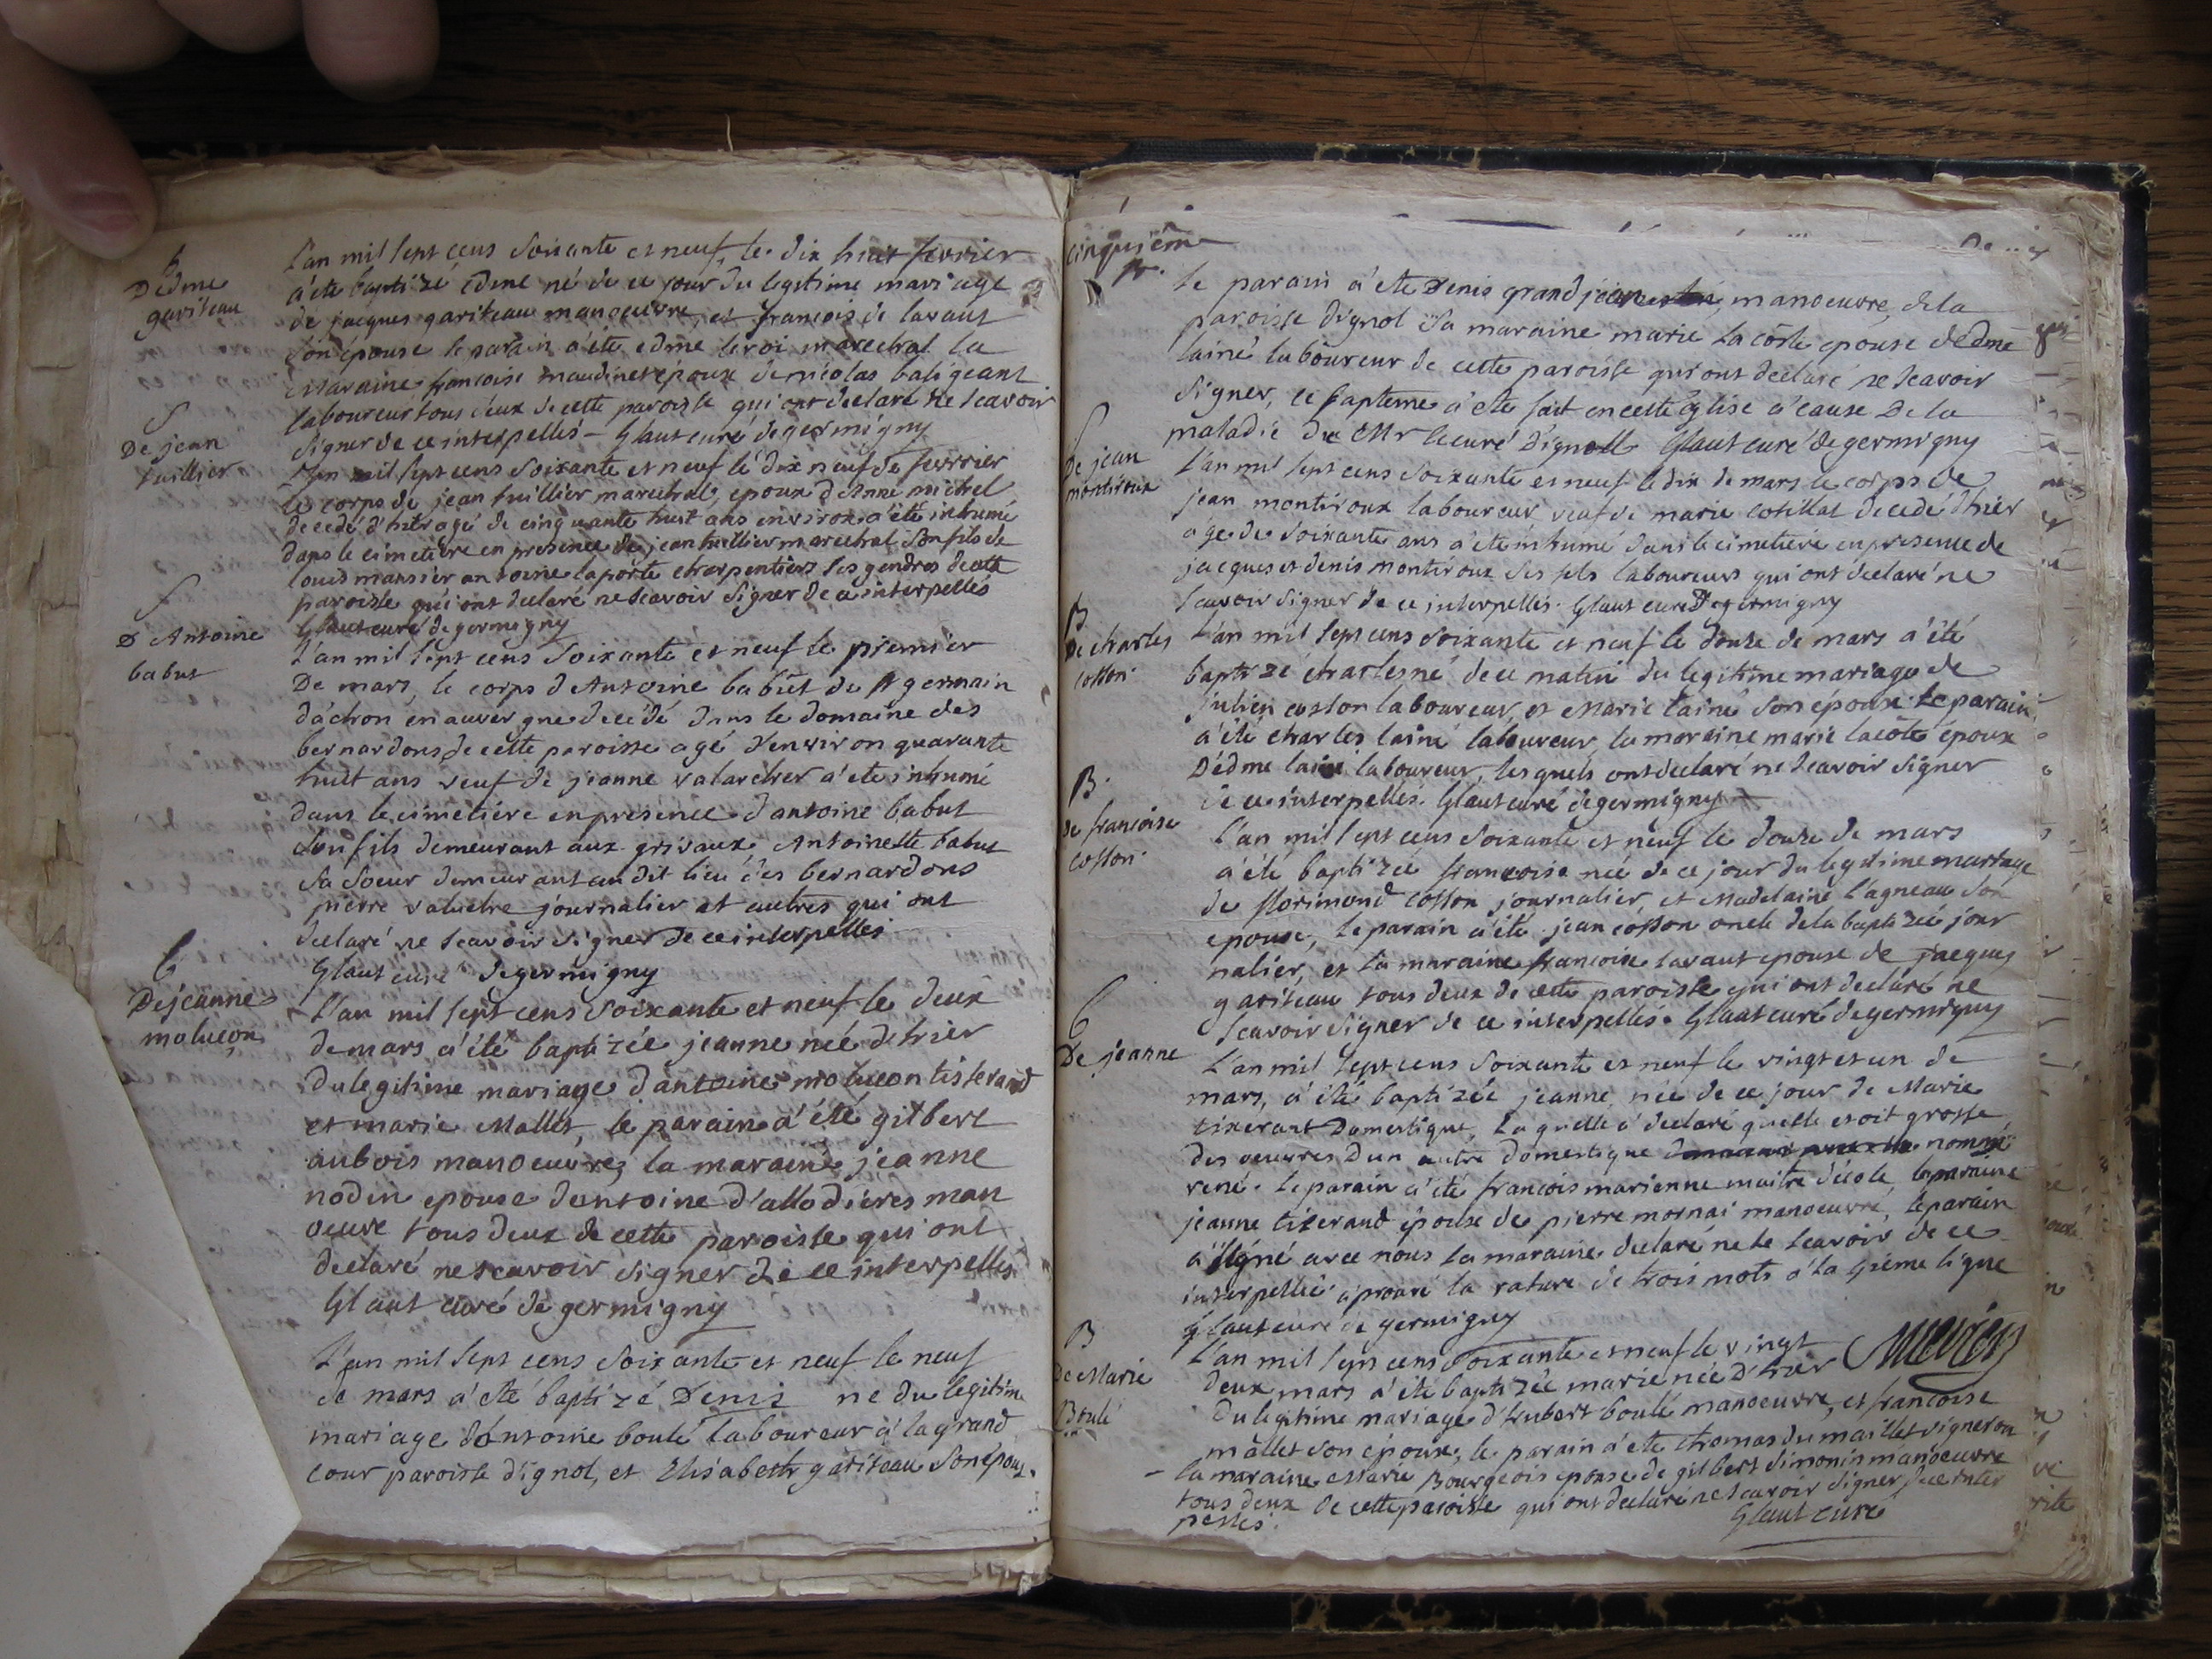 b
Dedme
gariteau
L'an mil sept cens soixante et neuf, le dix huit fevrier
a'ete baptizé edme né de ce jour du legitime mariage
de jacques gariteau manoeuvre, et francoise lavaut
son épouse le parain a'été edme leroi marechal la
maraine francoise maudinet epouse de nicolas baligeant
laboureur tous deux de cette paroisse qui ont declaré ne scavoir
signer de ce interpellés - Glaut curé de germigny
S
De jean
tuillier
L'an mil sept cens soixante et neuf le dix neuf de fevrier
le corps de jean tuillier marechal, epoux d'Anne michel
decedé d'hier agé de cinquante huit ans environ a'été inhumé
dans le cimetiere en presence de jean tuillier marechal son fils de
louis mansier antoine laporte charpentiers ses gendres de cette
paroisse qui ont declaré ne scavoir signer de ce interpellés
Glaut curé de germigny
S
D'Antoine
babut
L'an mil sept cens soixante et neuf le premier
De mars, le corps d'Antoine babût de St germain
d'achon en auvergne decédé dans le domaine des
bernardons de cette paroisse agé d'environ quarante
huit ans veuf de jeanne valarcher a'ete inhumé
dans le cimetiere en presence d'antoine babut
son fils demeurant aux grivaux, Antoinette babut
sa soeur demeurant au dit lieu des bernardons
pierre valuche journalier et autres qui ont
declaré ne scavoir signer de ce interpellés
Glaut curé de germigny
b
De jeanne
moluçon
L'an mil sept cens soixante et neuf le deux
de mars a'été baptizée jeanne née d'hier
du legitime mariage d'antoine moluçon tisserand
et marie Mallet, le parain a'été gilbert
aubois manoeuvre, la maraine jeanne
nodin epouse d'antoine d'allodieres man
oeuvre tous deux de cette paroisse qui ont
declaré ne scavoir signer de ce interpellés
Glaut curé de germigny
L'an mil sept cens soixante et neuf le neuf
de mars a'été baptizé Denis né du legitime
mariage d'antoine boulé laboureur à la grand
cour paroisse d'ignol, et Elisabeth gariteau son épouse.
cinquiéme
le parain a'ete Denis grandjean manoeuvre, de la
paroisse d'ignol sa maraine marie la côte epouse d'edme
lainé laboureur de cette paroisse qui ont declaré ne scavoir
signer, ce bapteme a'eté fait en cette eglise a'cause De la
maladie du Mr le curé d'ignoll Glaut curé de germigny
S
De jean
montiroux
L'an mil sept cens soixante et neuf le dix de mars le corps de
jean montiroux laboureur veuf de marie cotillat decedé d'hier
age de soixante ans a'été inhumé dans le cimetiere en presence de
jacques et denis montiroux ses fils laboureurs qui ont declaré ne
scavoir signer de ce interpellés. Glaut curé De germigny
B
De charles
cosson.
L'an mil sept cens soixante et neuf le douze de mars a'été
baptizé charles né de ce matin du legitime mariage de
julien cosson laboureur, et Marie lainé son épouse le parain
a'été charles lainé laboureur, la maraine marie lacôte épouse
D'édme lainé laboureur, lesquels ont declaré ne scavoir signer
de ce interpellés. Glaut curé de germigny
B.
de francoise
cosson.
L'an mil sept cens soixante et neuf le douze de mars
a'été baptizée francoise née de ce jour du legitime mariage
de florimond cosson journalier, et Madelaine l'agneau son
epouse, le parain a'été jean cosson oncle de la baptizée jour
nalier, et la maraine francoise lavaut epouse de jacques
gariteau tous deux de cette paroisse qui ont declaré ne
scavoir signer de ce interpellés. Glaut curé de germigny
b
De jeanne
L'an mil sept cens soixante et neuf le vingt et un de
mars, a'été baptizée jeanne, née de ce jour de Marie
tixerant Domestique, laquelle a'declaré quelle etoit grosse
des oeuvres D'un autre domestique nommé
rené. le parain a'été francois marienne maitre d'école, la maraine
jeanne tixerand épouse de pierre mornai manoeuvre, le parain
a'signé avec nous la maraine declaré ne le scavoir de ce
interpellée aprouvé la rature de trois mots a'la 4ieme ligne
Glaut curé de germigny
B
De Marie
Boulé
L'an mil sept cens soixante et neuf le vingt
deux mars a'été baptizée marie née d'hier
du legitime mariage d'hubert boulé manoeuvre, et francoise
mallet son épouse, le parain a'ete thomas dumaillet vigneron
la maraine marie Bourgeois epouse de gilbert simonin manoeuvre
tous deux de cette paroisse qui ont declaré ne scavoir signer, de ce inter
pellés.
Glaut curé